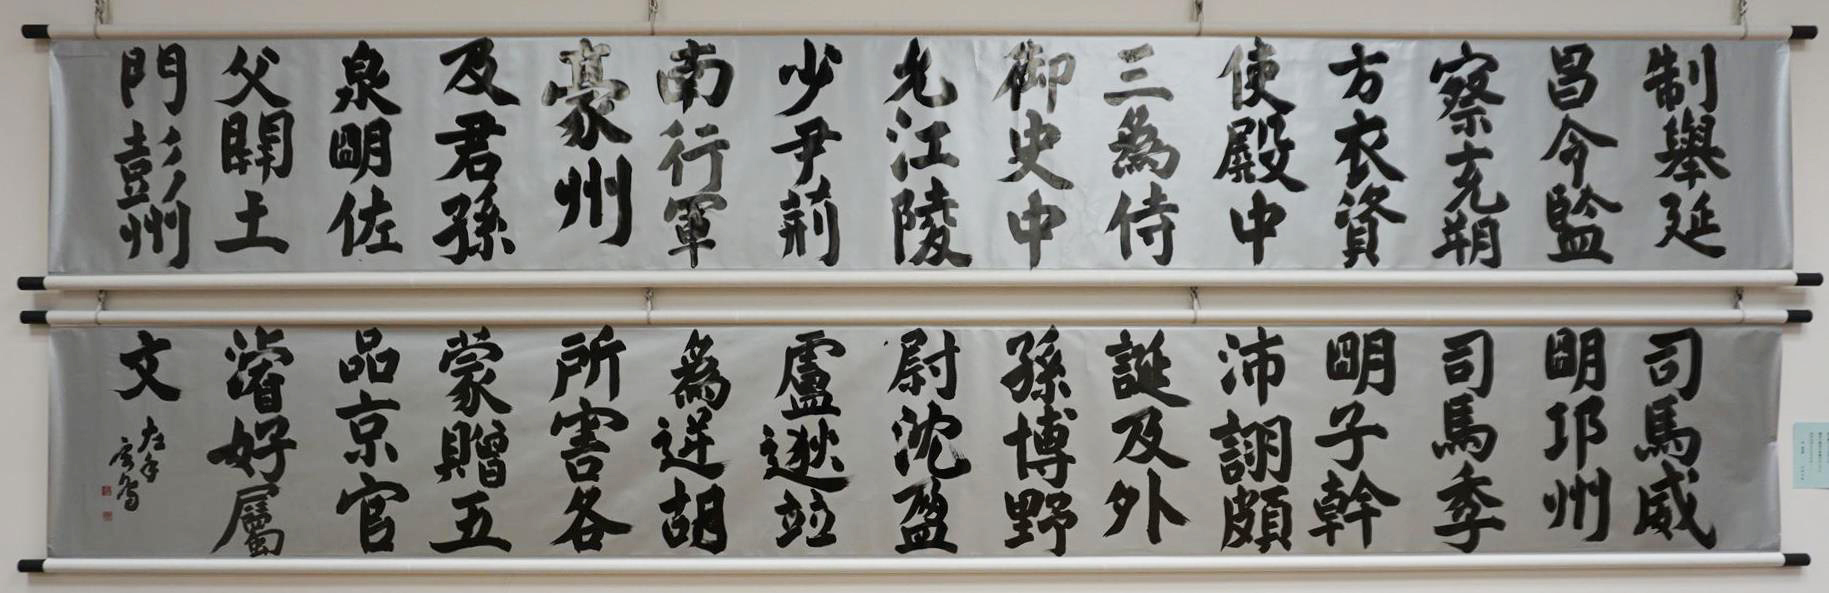 制舉延
昌令監
察充朔
方衣資
使殿中
三為侍
御史中
允江陵
少尹荊
南行軍
豪州
及君孫
泉明佐
父開土
門彭州
司馬威
明邛州
司馬季
明子幹
沛詡頗
誕及外
孫博野
尉沈盈
盧逖竝
為逆胡
所害各
蒙贈五
品京官
濬好屬
文